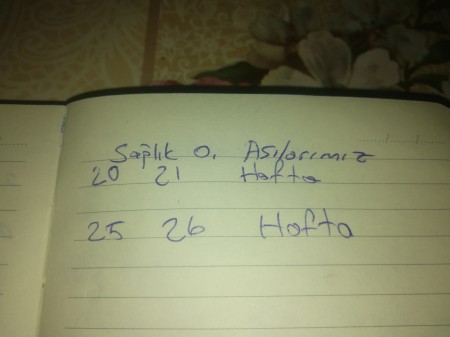 Sağlık O. Aşılarımız
20 21 Hafta
25 26 Hafta